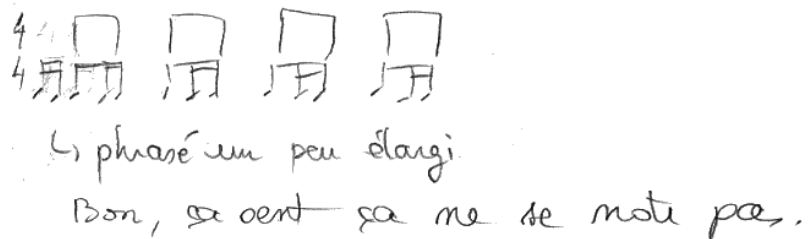 4
4
↳ phrasé un peu élargi
Bon, ça sent ça ne se note pas.